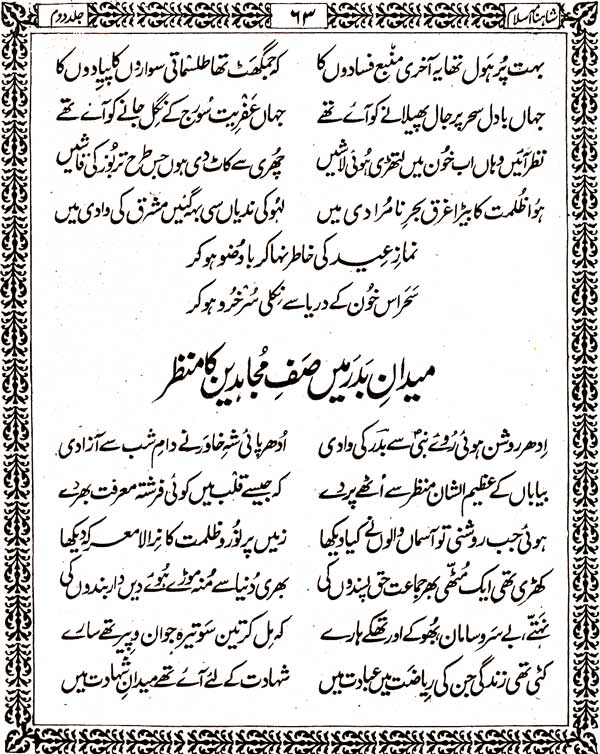 شاہنامۂ اسلام ۶۳ جلد دوم
بہت پُر ہول تھا یہ آخری منبع فسادوں کا کہ جمگھٹ تھا طلسماتی سواروں کا پیادوں کا
جہاں بادل سحر پر جال پھیلانے کو آئے تھے جہاں عفریت سورج کے نگل جانے کو آئے تھے
نظر آئیں وہاں اب خون میں لتھڑی ہوئی لاشیں چھری سے کاٹ دی ہوں جس طرح تربوز کی قاشیں
ہوا ظلمت کا بیڑا غرق بحرِ نامرادی میں لہو کی ندیاں سی بہہ گئیں مشرق کی وادی میں
نمازِ عید کی خاطر نہا کر باوضو ہو کر
سحر اس خون کے دریا سے نکلی سُرخرو ہو کر
میدانِ بدر میں صفِ مُجاہدین کا منظر
اِدھر روشن ہوئی رُوئے نبیؐ سے بدر کی وادی اُدھر پائی شہِ خاور نے دامِ شب سے آزادی
بیاباں کے عظیم الشان منظر سے اُٹھے پردے کہ جیسے قلب میں کوئی فرشتہ معرفت بھر دے
ہوئی جب روشنی تو آسماں والوں نے کیا دیکھا زمیں پر نُور و ظلمت کا نرالا معرکہ دیکھا
کھڑی تھی ایک مُٹھی بھر جماعت حق پسندوں کی بھری دُنیا سے مُنہ موڑے ہُوئے دیں دار بندوں کی
نہتے، بے سر و سامان بھوکے اور تھکے ہارے کہ مِل کر تین سو تیرہ جوان و پیر تھے سارے
کٹی تھی زندگی جن کی ریاضت میں عبادت میں شہادت کے لئے آئے تھے میدانِ شہادت میں